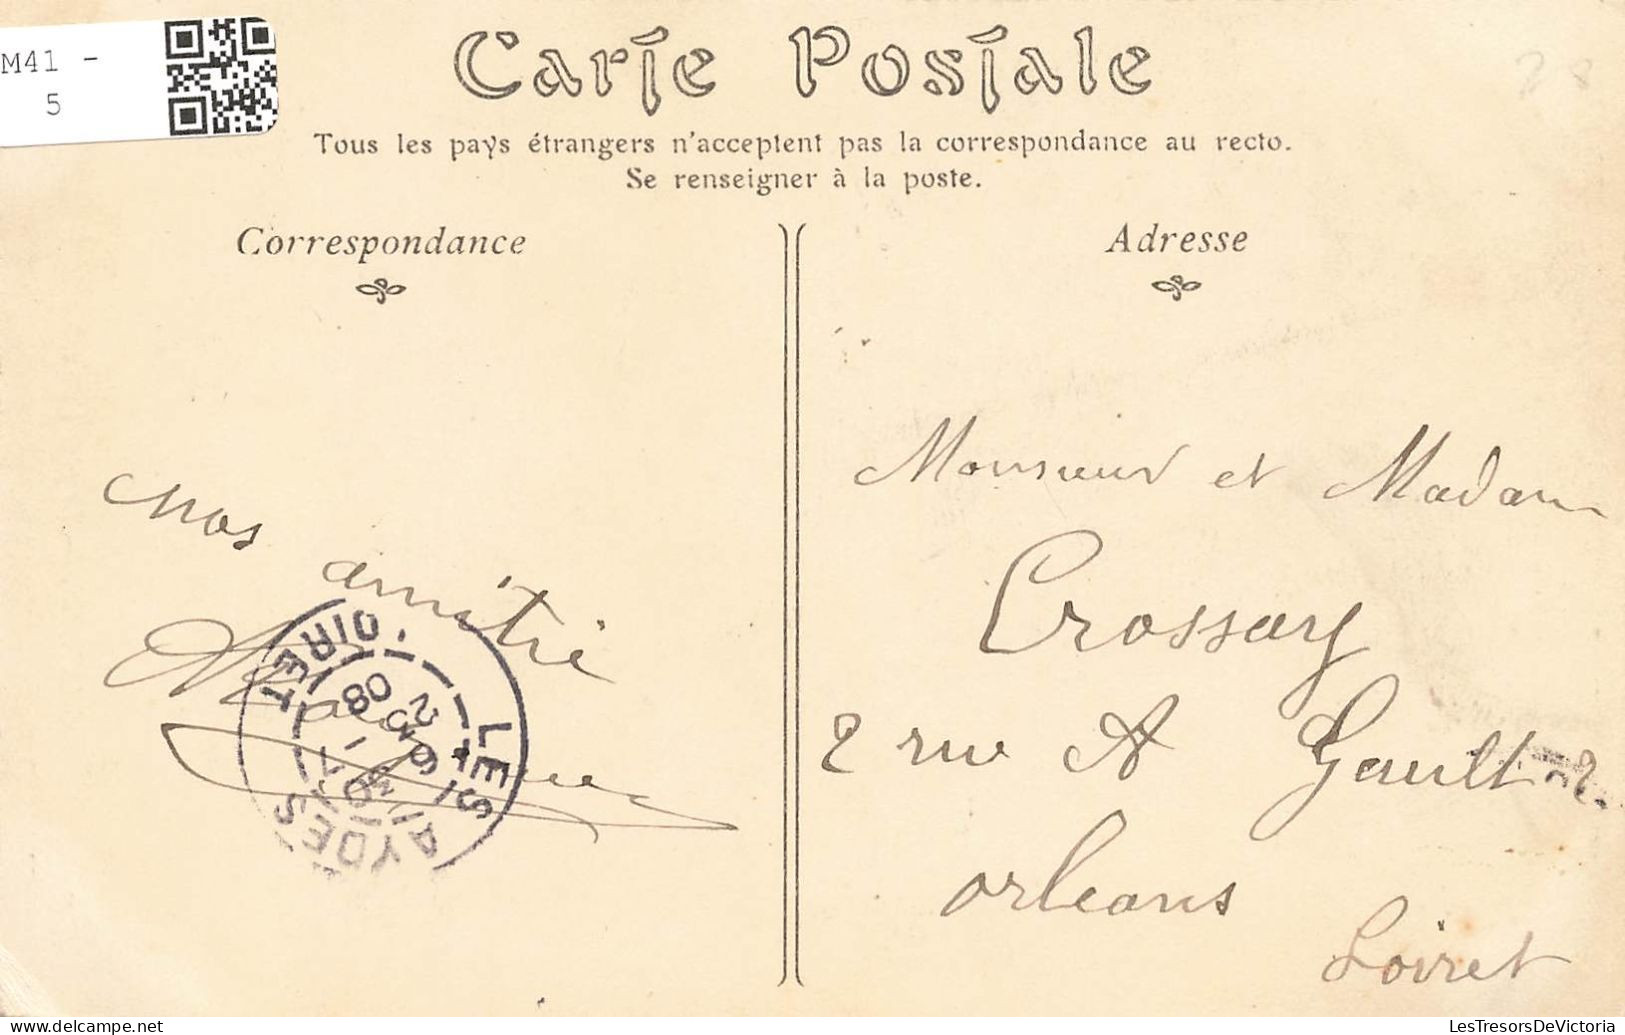 M41 -
5
Carte Postale
Tous les pays étrangers n'acceptent pas la correspondance au recto.
Se renseigner à la poste.
Correspondance
Adresse
Nos amitié
Monsieur et Madame
Crossary
2 rue A Gault 2
Orleans
Loiret
LES AYDES
LOIRET
6 30
25 - 7
08
delcampe.net
LesTresorsDeVictoria